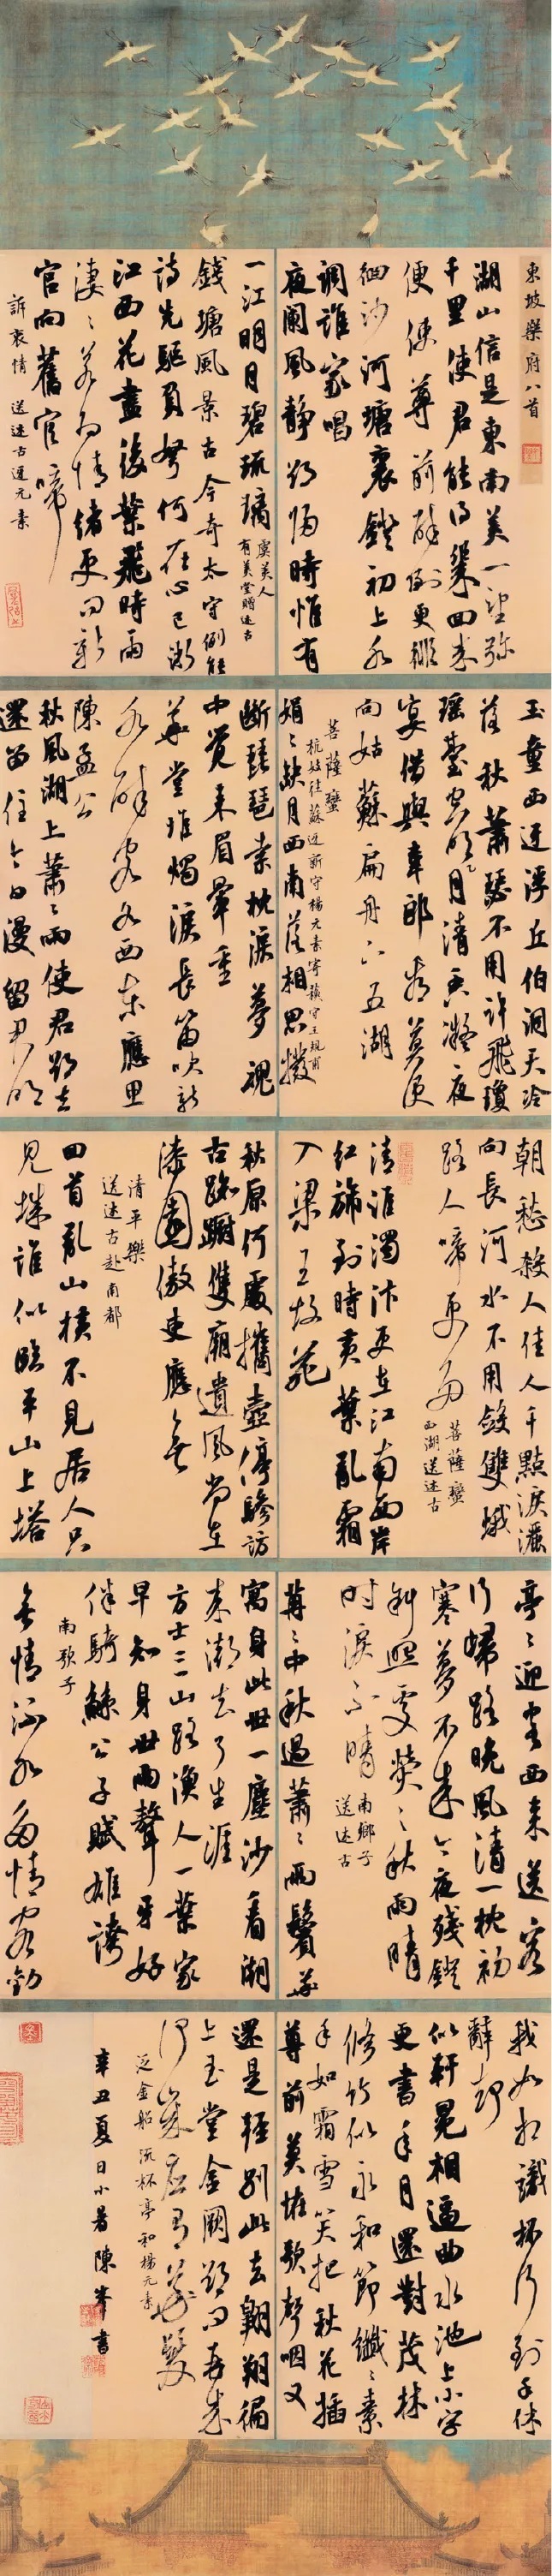 東坡樂府八首
湖山信是東南美一望弥
千里使君能得幾回来
便使尊前醉倒更徘
徊沙河塘裏鐙初上水
調誰家唱
夜闌風静欲歸時惟有
一江明月碧琉璃
虞美人
有美堂贈述古
錢塘風景古今奇太守例能
詩先驅負弩何在心已淛
江西花盡後葉飛時雨
凄〻若为情緒更问新
官向舊官啼
訴衷情 送述古迓元素
玉童西迓浮丘伯洞天冷
落秋蕭瑟不用許飛瓊
瑶臺空明月清香凝夜
宴借與韋郎看莫便
向姑蘇扁舟下五湖
菩薩蠻
杭妓往蘇迓新守楊元素寄蘇守王規甫
娟〻缺月西南落相思撥
斷琵琶索枕淚夢魂
中覺来眉暈重
華堂堆燭淚長笛吹新
水醉客各西东應思
陳孟公
秋風湖上蕭〻雨使君欲去
還留住今日漫留君明
朝愁殺人佳人千點淚灑
向長河水不用斂雙蛾
路人啼更多
菩薩蠻
西湖送述古
清淮濁汴更在江南西岸
红旆到時黄葉亂霜
入梁王故苑
秋原何處攜壺停驂訪
古踟躕雙廟遺風尚在
漆園傲吏應無
清平樂
送述古赴南都
回首亂山横不見居人只
見城誰似臨平山上塔
亭〻迎客西来送客
行歸路晚風清一枕初
寒夢不成今夜残鐙
斜照處熒〻秋雨晴
时淚不晴
南鄉子
送述古
苒〻中秋過蕭〻兩鬢華
寓身此世一塵沙看潮
来潮去了生涯
方士三山路漁人一葉家
早知身世兩聱牙好
伴騎鯨公子賦雄誇
南歌子
無情流水多情客勸
我如相識杯行到手休
辭却
似軒冕相逼曲水池上小字
更書年月還對茂林
修竹似永和節纖〻素
手如霜雪笑把秋花插
尊前莫怪歌聲咽又
還是輕別此去翱翔徧
上玉堂金闕欲问再来
何歲應有華髮
泛金船 流杯亭和楊元素
辛丑夏日小暑陳峰書